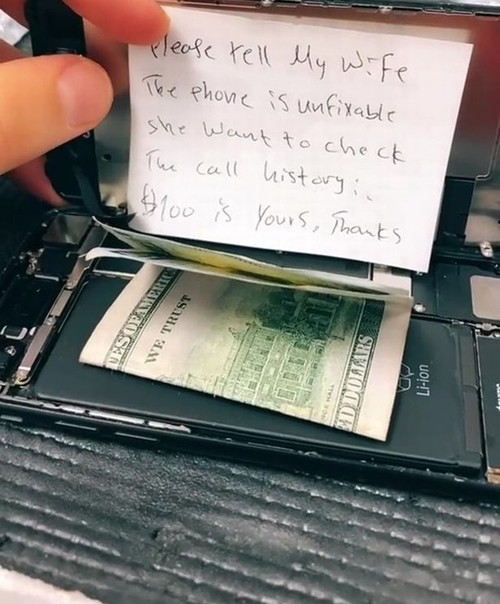 Please tell My Wife
The phone is unfixable
she want to check
The call history;.
$100 is Yours, Thanks
WE TRUST
Li-ion